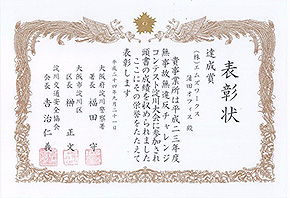 表彰状
達成賞
(株)エムズワークス
蒲田オフィス 殿
貴事業所は平成二三年度
無事故無違反チャレンジ
コンテスト淀川大会に参加され
頭書の成績を収められました
ここにその栄誉をたたえて
表彰します
平成二十四年九月二十一日
大阪府淀川警察署
署長 福田 守
大阪市淀川区
区長 榊 正文
淀川交通安全協会
会長 𠮷治仁義